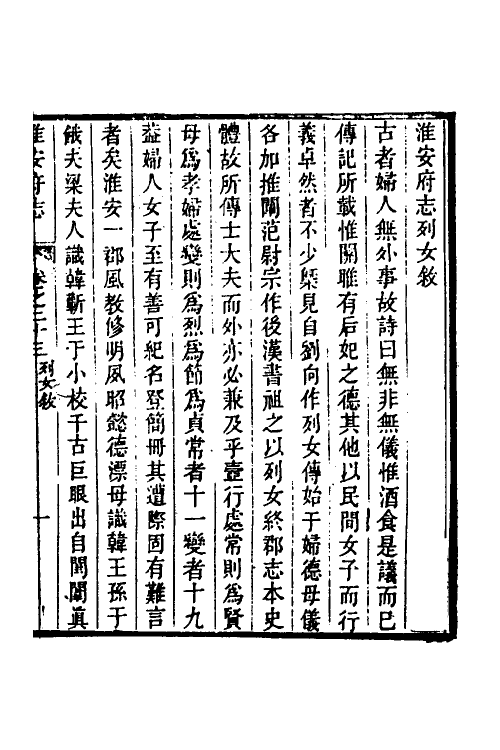 淮安府志列女敘
古者婦人無外事故詩曰無非無儀惟酒食是議而已
傳記所載惟關雎有后妃之德其他以民間女子而行
義卓然者不少槩見自劉向作列女傳始于婦德母儀
各加推闡范尉宗作後漢書祖之以列女終郡志本史
體故所傳士大夫而外亦必兼及乎壼行處常則爲賢
母爲孝婦處變則爲烈爲節爲貞常者十一變者十九
蓋婦人女子至有善可紀名登簡冊其遭際固有難言
者矣淮安一郡風教修明夙昭懿德漂母識韓王孫于
餓夫梁夫人識韓蘄王于小校千古巨眼出自閨闥眞
淮安府志 卷之二十三 列女敘 一